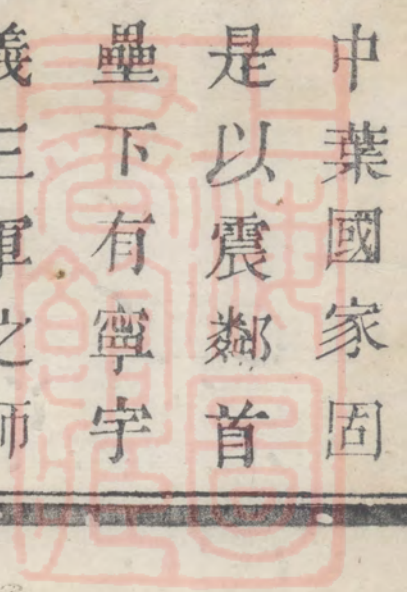 中葉國家固
是以震鄰首
壘下有寧宇
義三軍之師